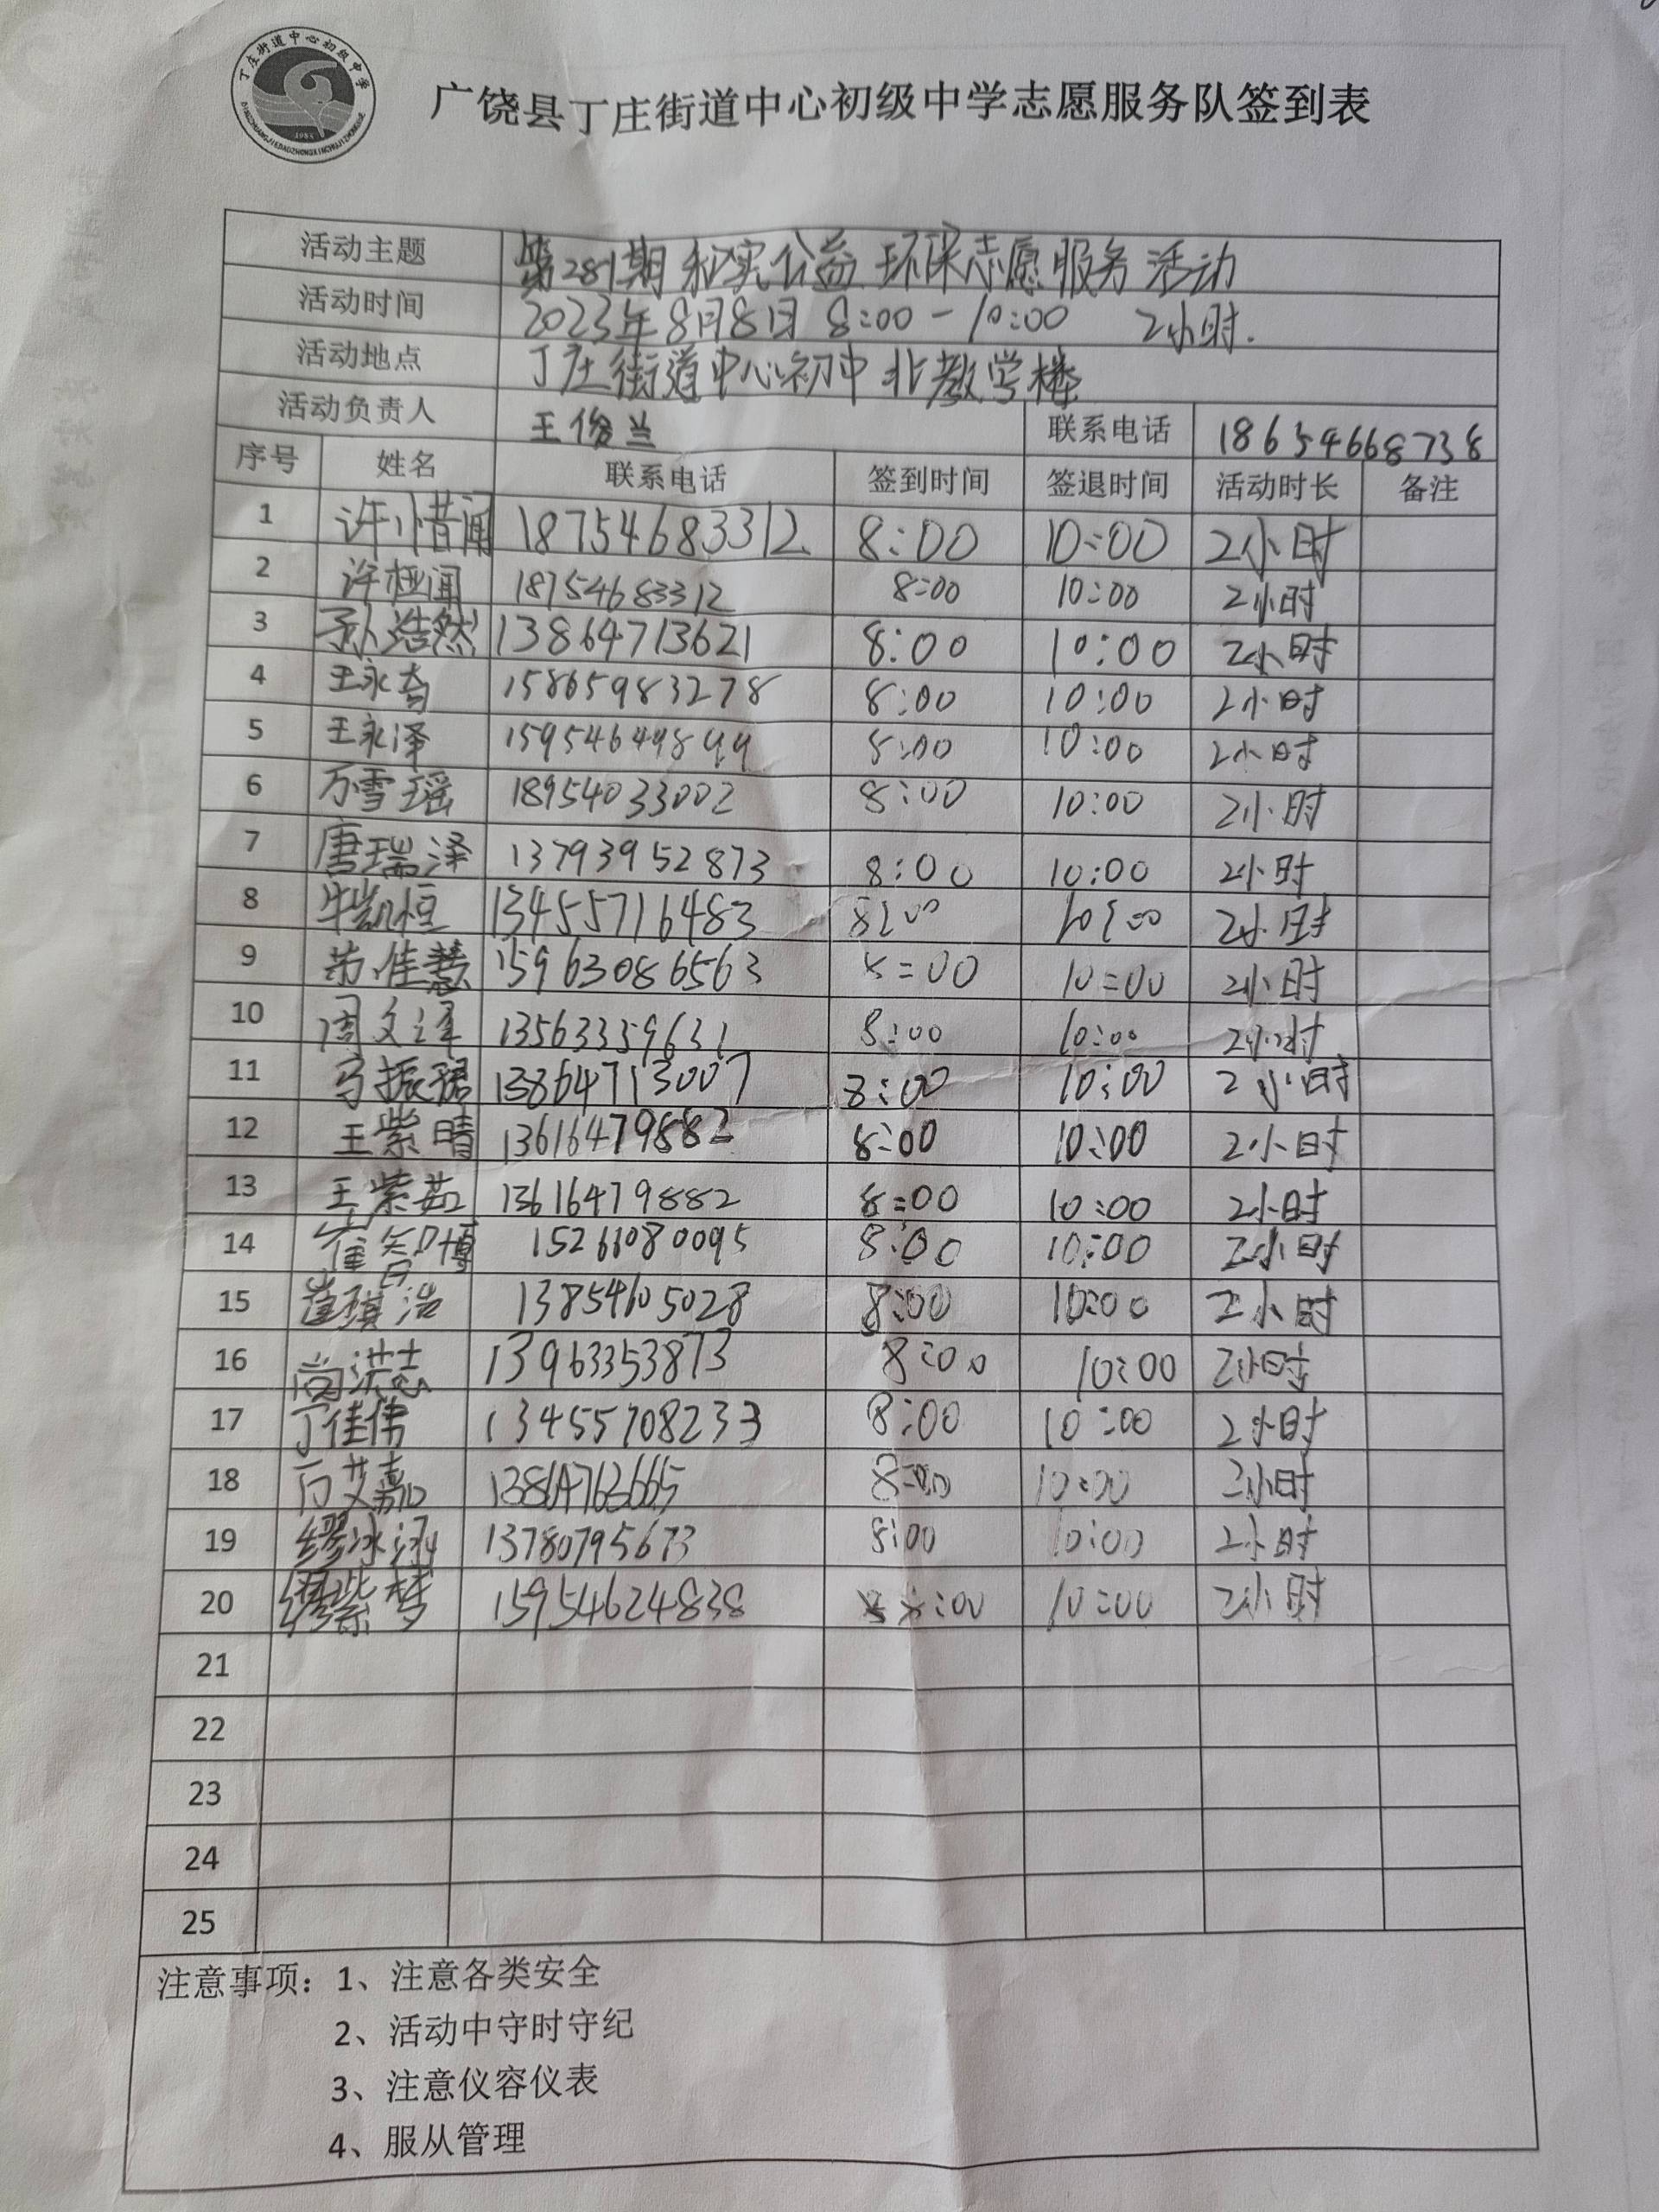 丁庄街道中心初级中学
1985
DINGZHUANGJIEDAOZHONGXINCHUJIZHONGXUE
广饶县丁庄街道中心初级中学志愿服务队签到表
活动主题 第281期 和实公益 环保志愿服务活动
活动时间 2023年8月8日 8:00-10:00 2小时.
活动地点 丁庄街道中心初中北教学楼
活动负责人 王俊兰 联系电话 18654668738
序号 姓名 联系电话 签到时间 签退时间 活动时长 备注
1 许惜闻 18754683312 8:00 10:00 2小时
2 许桠闻 18754683312 8:00 10:00 2小时
3 孙浩然 13864713621 8:00 10:00 2小时
4 王永奇 15865983278 8:00 10:00 2小时
5 王永泽 15954649899 8:00 10:00 2小时
6 万雪瑶 18954033002 8:00 10:00 2小时
7 唐瑞泽 13793952873 8:00 10:00 2小时
8 牛凯恒 13455716483 8:00 10:00 2小时
9 佳慧 15963086563 8:00 10:00 2小时
10 周文泽 13563359631 8:00 10:00 2小时
11 马振珺 13864713007 8:00 10:00 2小时
12 王紫晴 13616479882 8:00 10:00 2小时
13 王紫茹 13616479882 8:00 10:00 2小时
14 崔智博 15266080095 8:00 10:00 2小时
15 崔琪浩 13854605028 8:00 10:00 2小时
16 尚洪志 13963353873 8:00 10:00 2小时
17 丁佳伟 13455708233 8:00 10:00 2小时
18 艾嘉 13864763665 8:00 10:00 2小时
19 缪冰冰 13780795673 8:00 10:00 2小时
20 缪紫梦 15954624838 :00 10:00 2小时
21
22
23
24
25
注意事项：1、注意各类安全
2、活动中守时守纪
3、注意仪容仪表
4、服从管理